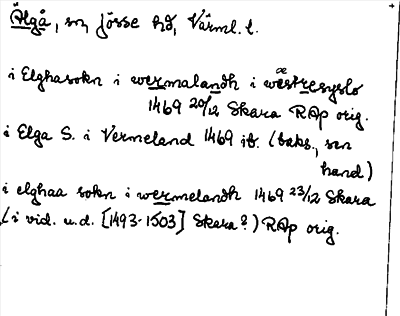 Älgå, sn, Jösse hd, Värml. l.
i Elghasokn i wermalandh i wæstresyslo
1469 20/12 Skara RAp orig.
i Elga S. i Vermeland 1469 ib. (baks., sen
hand)
i elghaa sokn i wermelandh 1469 23/12 Skara
(i vid. u.d. [1493-1503] Skara?) RAp orig.